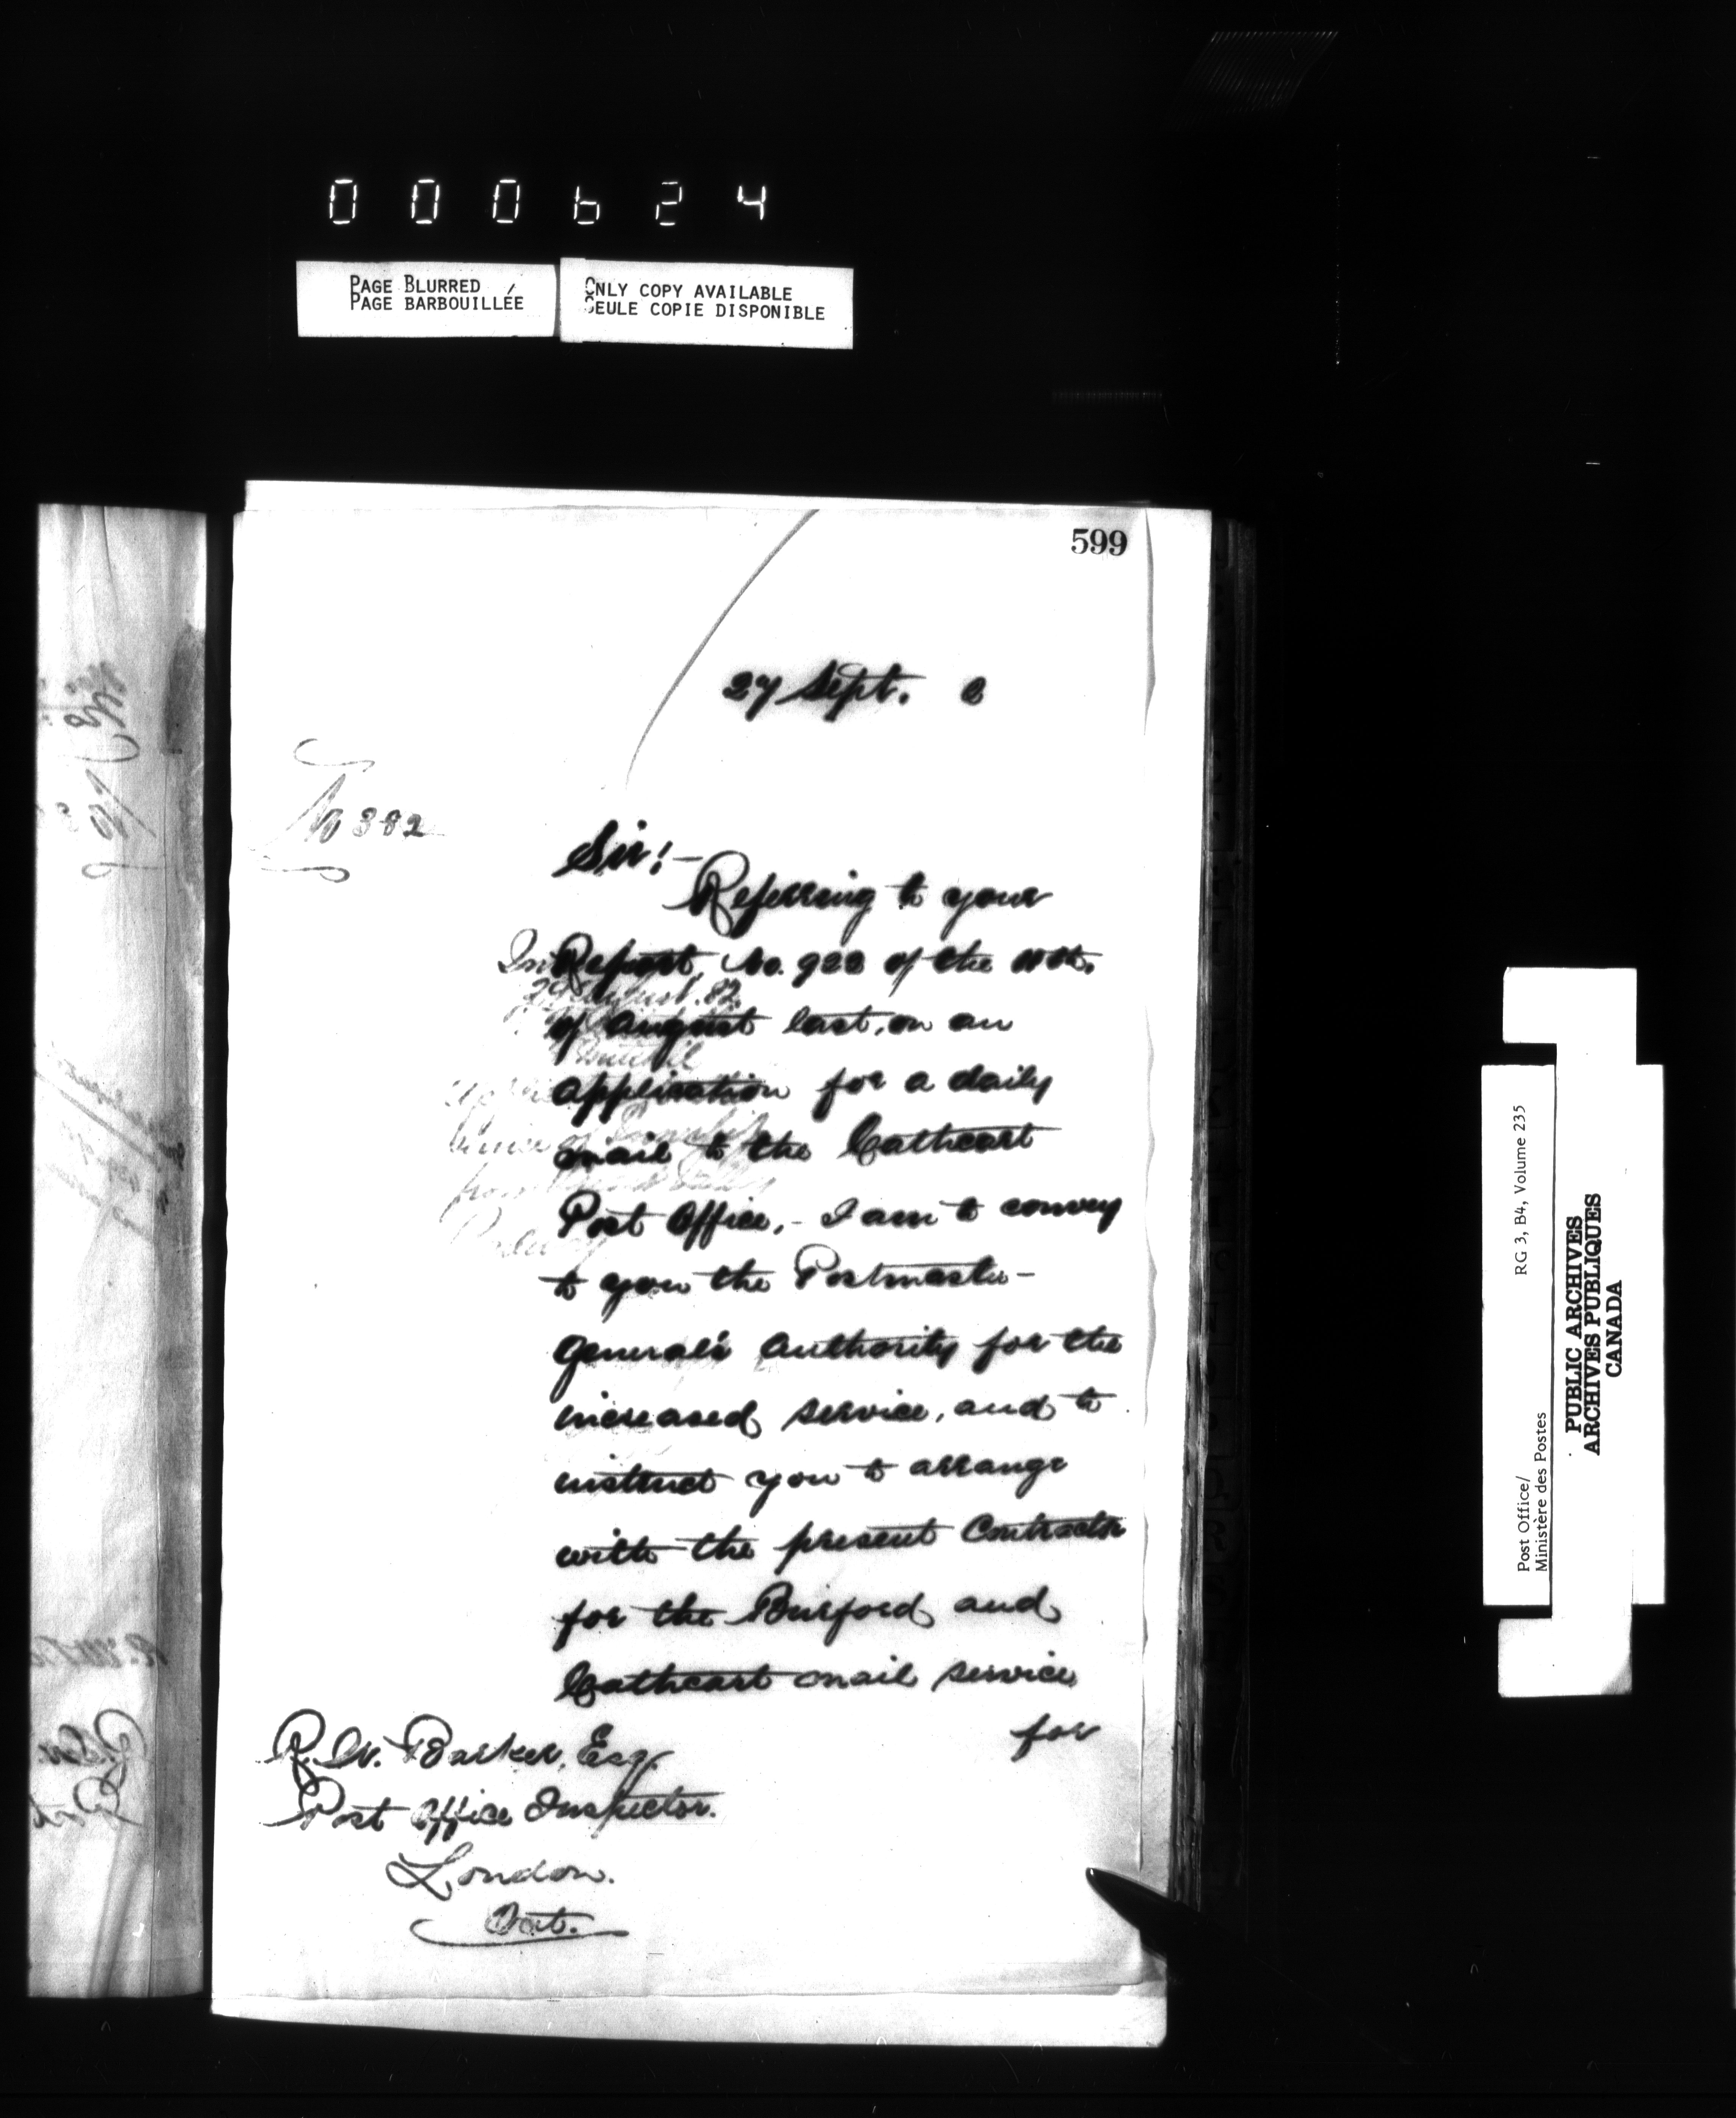 000624
PAGE BLURRED
PAGE BARBOUILLÉE
ONLY COPY AVAILABLE
SEULE COPIE DISPONIBLE
599
27 Sept. 2
No 382
Sir! —
Referring to your
Report, No. 922 of the
of August last, on an
application for a daily
mail to the Cathcart
Post Office, - I am to convey
to you the Postmaster-
General's Authority for the
increased service, and to
instruct you to arrange
with the present Contractor
for the Burford and
Cathcart mail service
for
R. W. Barker, Esq.
Post Office Inspector.
London.
Ont.
Post Office/
Ministère des Postes
RG 3, B4, Volume 235
PUBLIC ARCHIVES
ARCHIVES PUBLIQUES
CANADA